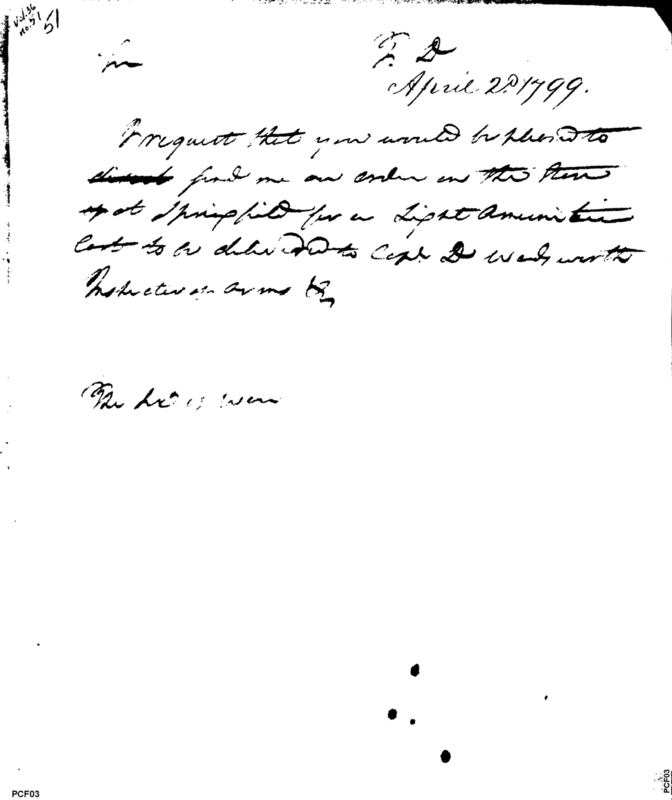 Vol. 36
No. 51
51
Sir
T. D
April 2d 1799.
I request that you would be pleased to
direct send me an order on the Store
at Springfield for a Light Amunition
Cart to be delivered to Capt. D Wadsworth
Inspector of arms &c
The Secy of War
PCF03
PCF03